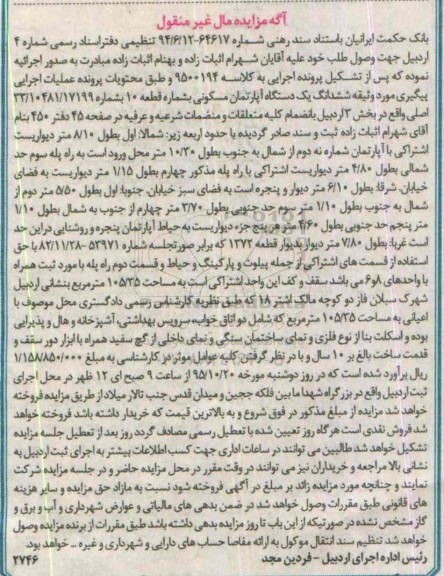 آگه مزایده مال غیر منقول
بانک حکمت ایرانیان باستناد سند رهنی شماره ۶۴۶۱۷-۹۴/۶/۱۲ تنظیمی دفتراسناد رسمی شماره ۴
اردبیل جهت وصول طلب خود علیه آقایان شهرام اثبات زاده و بهنام اثبات زاده مبادرت به صدور اجرائیه
نموده که پس از تشکیل پرونده اجرایی به کلاسه ۹۵۰۰۱۹۴ و طبق محتویات پرونده عملیات اجرایی
پیگیری مورد وثیقه ششدانگ یک دستگاه آپارتمان مسکونی بشماره قطعه ۱۰ بشماره ۳۳/۱۰۴۸۱/۱۷۱۹۹
اصلی واقع در بخش ۳ اردبیل بانضمام کلیه متعلقات و منضمات شرعیه و عرفیه در صفحه ۴۵ دفتر ۴۵۰ بنام
آقای شهرام اثبات زاده ثبت و سند صادر گردیده با حدود اربعه زیر: شمالا: اول بطول ۸/۱۰ متر دیواریست
اشتراکی با آپارتمان شماره نه دوم از شمال به جنوب بطول ۱۰/۳۰ متر محل ورود است به راه پله سوم حد
شمالی بطول ۴/۸۰ متر دیواریست اشتراکی با راه پله مذکور چهارم بطول ۱/۱۵ متر دیواریست به فضای
خیابان. شرقا: بطول ۶/۱۰ متر دیوار و پنجره است به فضای سبز خیابان. جنوبا: اول بطول ۵/۵۰ متر دوم از
شمال به جنوب بطول ۱/۱۰ متر سوم حد جنوبی بطول ۳/۷۰ متر چهارم از جنوب به شمال بطول ۱/۱۰
متر پنجم حد جنوبی بطول ۴/۶۰ متر هر پنج جزء دیواریست به حیاط آپارتمان پنجره و روشنایی در این حد
است غربا: بطول ۷/۸۰ متر دیوار بدیوار قطعه ۱۳۷۲ که برابر صورتجلسه شماره ۵۳۹۷۱-۸۲/۱۱/۲۸ با حق
استفاده از قسمت های اشتراکی از جمله پیلوت و پارکینگ و حیاط و قسمت دوم راه پله با مورد ثبت همراه
با واحدهای ۸و۶ می باشد سقف و کف این واحد اشتراکی است به مساحت ۱۰۵/۳۵ مترمربع بنشانی اردبیل
شهرک سبلان فاز دو کوچه مالک اشتر ۱۸ که طبق نظریه کارشناس رسمی دادگستری محل موصوف با
اعیانی به مساحت ۱۰۵/۳۵ مترمربع که شامل دو اتاق خواب، سرویس بهداشتی، آشپزخانه و هال و پذیرایی
بوده و اسکلت بنا از نوع فلزی و نمای ساختمان سنگی و نمای داخلی از گچ سفید همراه با ابزار دور سقف و
قدمت ساخت بالغ بر ۱۰ سال و با در نظر گرفتن کلیه عوامل موثر در کارشناسی به مبلغ ۱/۱۵۸/۸۵۰/۰۰۰
ریال برآورد شده است که در روز دوشنبه مورخه ۹۵/۱۰/۲۰ از ساعت ۹ صبح الی ۱۲ ظهر در محل اجرای
ثبت اردبیل واقع در بزرگراه شهدا ما بین فلکه ججین و میدان قدس جنب تالار میلاد از طریق مزایده فروخته
خواهد شد مزایده از مبلغ مذکور در فوق شروع و به بالاترین قیمت که خریدار داشته باشد فروخته خواهد
شد فروش نقدی است هر گاه روز تعیین شده با تعطیل رسمی مصادف گردد روز بعد از تعطیل جلسه مزایده
تشکیل خواهد شد طالبین می توانند در ساعات اداری جهت کسب اطلاعات بیشتر به اجرای ثبت اردبیل به
نشانی بالا مراجعه و خریداران نیز می توانند در وقت مقرر در محل مزایده حاضر و در جلسه مزایده شرکت
نمایند و چنانچه مورد مزایده زائد بر مبلغ در آگهی فروخته شود نسبت به مازاد حق مزایده و سایر هزینه
های قانونی طبق مقررات وصول خواهد شد در ضمن بدهی های مالیاتی و عوارض شهرداری و آب و برق و
گاز مشخص نشده در صورتیکه از این باب تا روز مزایده بدهی داشته باشد طبق مقررات از برنده مزایده وصول
خواهد شد تنظیم سند انتقال موکول به ارائه مفاصا حساب های دارایی و شهرداری و غیره ... خواهد بود.
رئیس اداره اجرای اردبیل - فردین مجد ۲۷۴۶